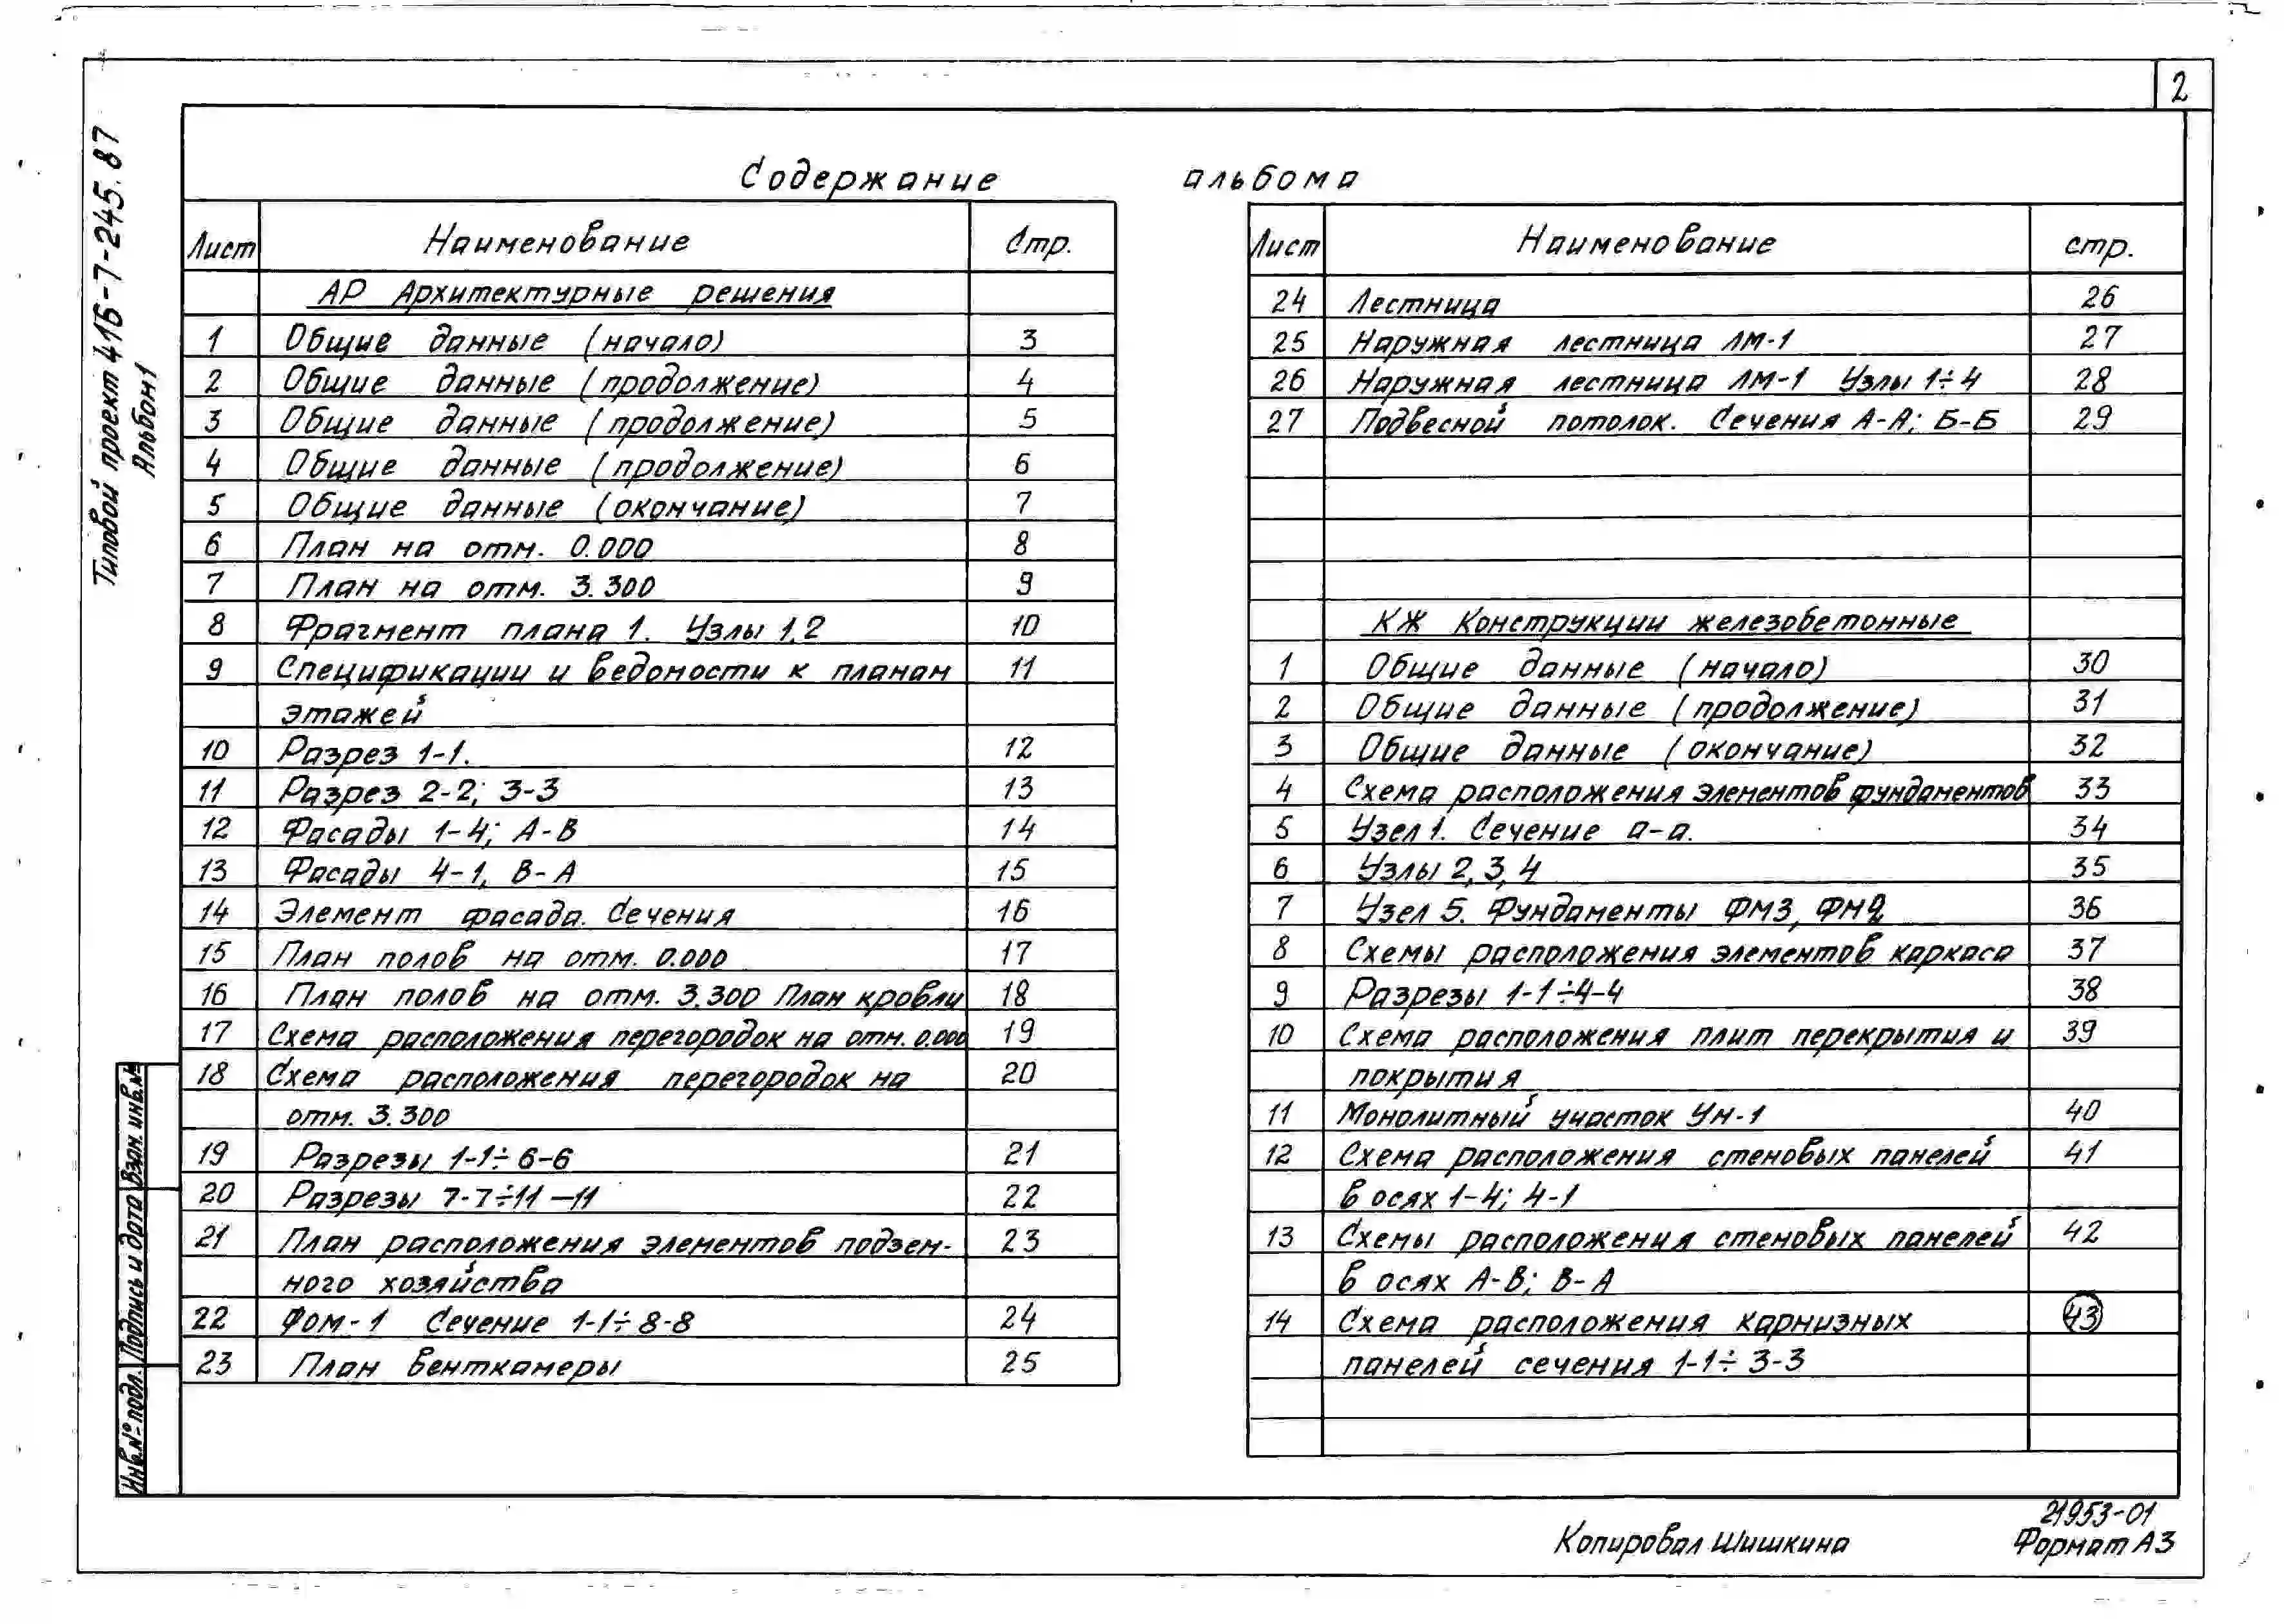 2
Типовой проект 416-7-245.87
Альбом 1
Содержание альбома
Лист Наименование Стр.
АР Архитектурные решения
1 Общие данные (начало) 3
2 Общие данные (продолжение) 4
3 Общие данные (продолжение) 5
4 Общие данные (продолжение) 6
5 Общие данные (окончание) 7
6 План на отм. 0.000 8
7 План на отм. 3.300 9
8 Фрагмент плана 1. Узлы 1,2 10
9 Спецификации и ведомости к планам 11
этажей
10 Разрез 1-1. 12
11 Разрез 2-2; 3-3 13
12 Фасады 1-4; А-В 14
13 Фасады 4-1, В-А 15
14 Элемент фасада. Сечения 16
15 План полов на отм. 0.000 17
16 План полов на отм. 3.300 План кровли 18
17 Схема расположения перегородок на отм. 0.000 19
18 Схема расположения перегородок на 20
отм. 3.300
19 Разрезы 1-1÷6-6 21
20 Разрезы 7-7÷11-11 22
21 План расположения элементов подзем- 23
ного хозяйства
22 Фом-1 Сечение 1-1÷8-8 24
23 План венткамеры 25
Лист Наименование стр.
24 Лестница 26
25 Наружная лестница ЛМ-1 27
26 Наружная лестница ЛМ-1 Узлы 1÷4 28
27 Подвесной потолок. Сечения А-А; Б-Б 29
КЖ Конструкции железобетонные
1 Общие данные (начало) 30
2 Общие данные (продолжение) 31
3 Общие данные (окончание) 32
4 Схема расположения элементов фундаментов 33
5 Узел 1. Сечение а-а. 34
6 Узлы 2, 3, 4 35
7 Узел 5. Фундаменты ФМ3, ФМ2 36
8 Схемы расположения элементов каркаса 37
9 Разрезы 1-1÷4-4 38
10 Схема расположения плит перекрытия и 39
покрытия
11 Монолитный участок Ум-1 40
12 Схема расположения стеновых панелей 41
в осях 1-4; 4-1
13 Схемы расположения стеновых панелей 42
в осях А-В; В-А
14 Схема расположения карнизных 43
панелей сечения 1-1÷3-3
Взам. инв.№
Подпись и дата
Инв.№ подл.
21953-01
Копировал Шишкина Формат А3